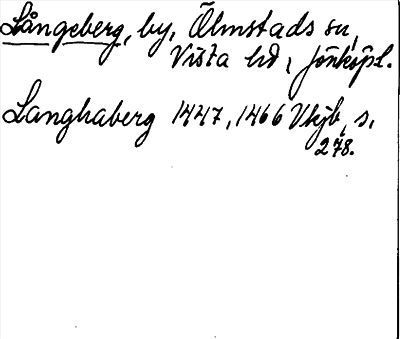 Långeberg, by, Ölmstads sn,
Vista hd, Jönköpl.
Langhaberg 1447, 1466 Vkjb, s.
278.